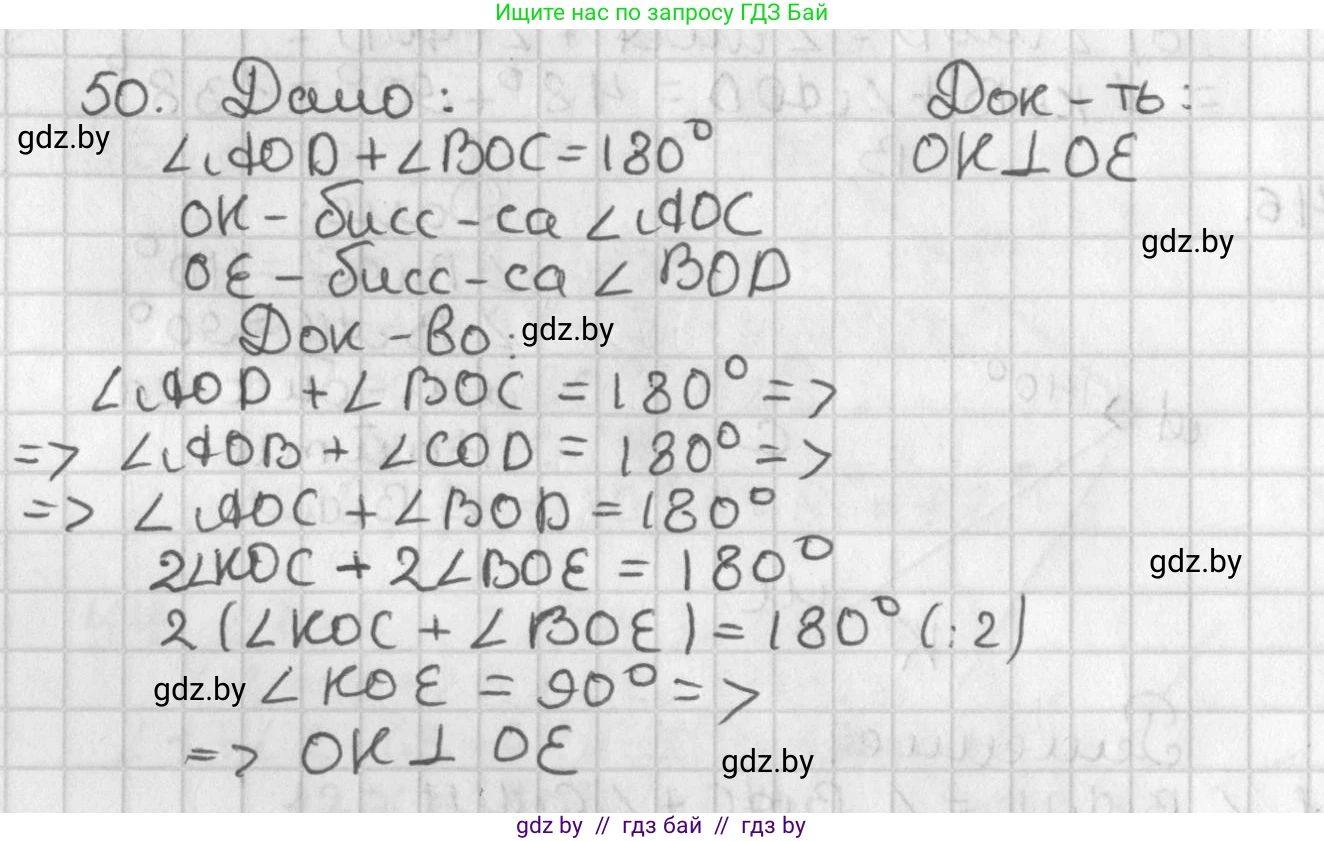 Ищите нас по запросу ГДЗ Бай
50. Дано: Док-ть:
gdz.by
∠AOD + ∠BOC = 180° OK⊥OE
OK - бисс-са ∠AOC
gdz.by
OE - бисс-са ∠BOD
Док-во: gdz.by
∠AOD + ∠BOC = 180° =>
=> ∠AOB + ∠COD = 180° =>
=> ∠AOC + ∠BOD = 180°
2∠KOC + 2∠BOE = 180°
gdz.by
2(∠KOC + ∠BOE) = 180° (:2)
gdz.by ∠KOE = 90° =>
=> OK⊥OE
gdz.by
gdz by // гдз бай // гдз by